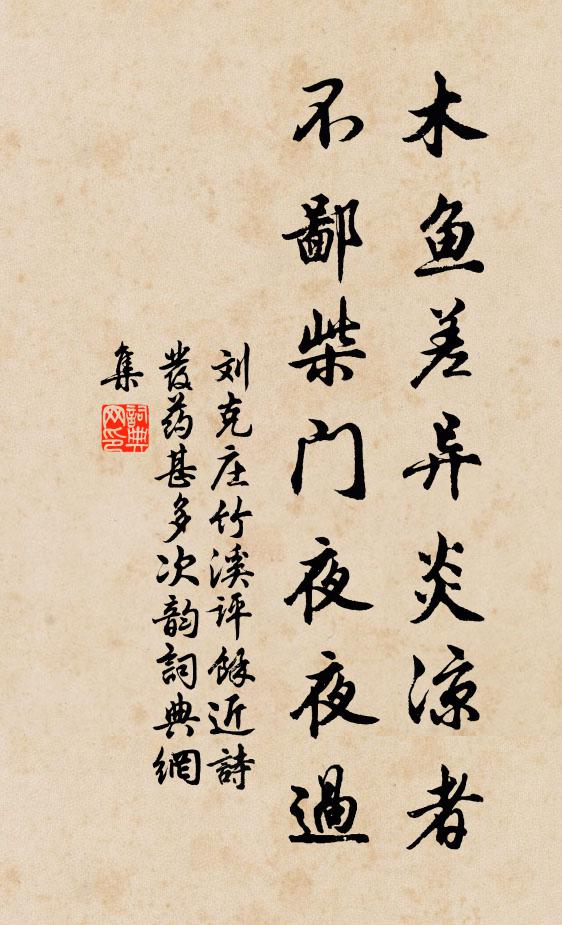 木鱼差异炎凉者
不鄙柴门夜夜過
刘克庄竹溪评馀近詩
發药甚多次韵詞典網
集
詞典网印